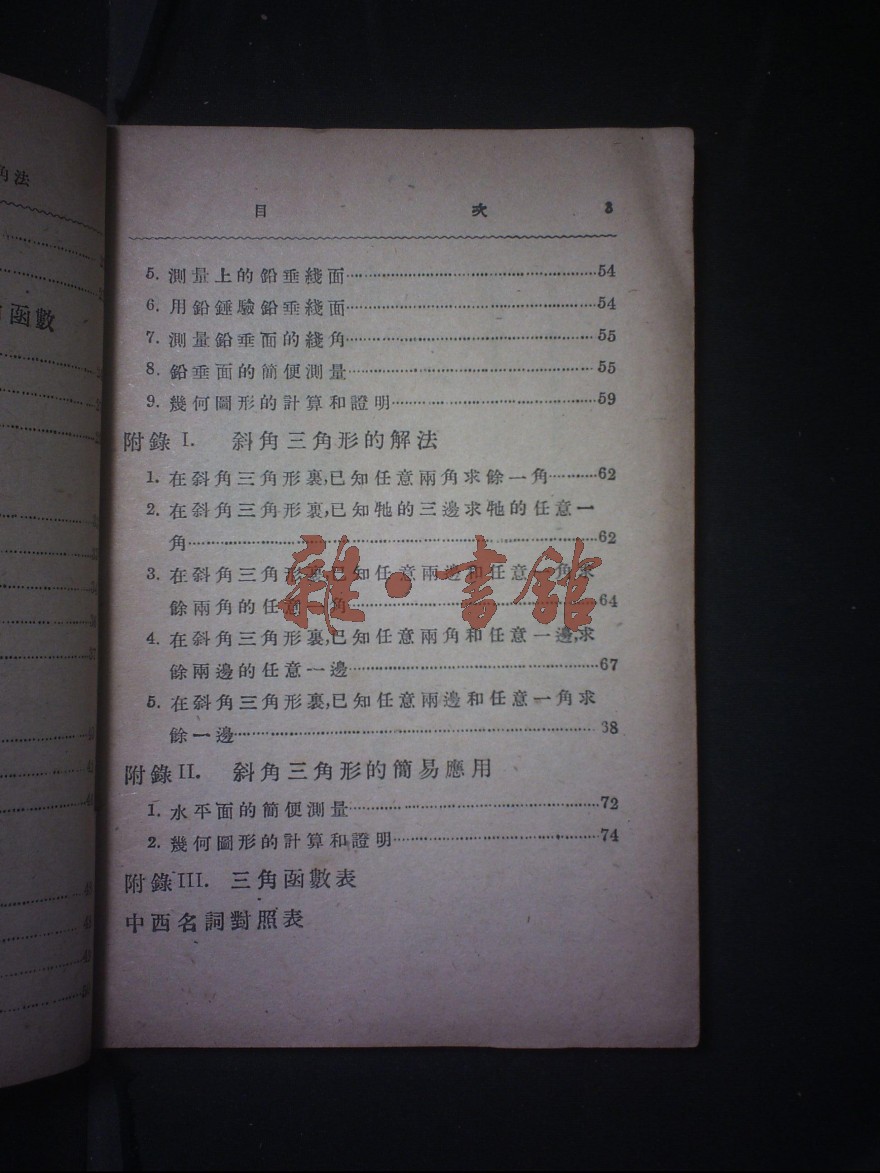 角法
函數
目 次 3
5. 測量上的鉛垂綫面……54
6. 用鉛錘驗鉛垂綫面……54
7. 測量鉛垂面的綫角……55
8. 鉛垂面的簡便測量……55
9. 幾何圖形的計算和證明……59
附錄 I. 斜角三角形的解法
1. 在斜角三角形裏,已知任意兩角求餘一角……62
2. 在斜角三角形裏,已知牠的三邊求牠的任意一
角……62
3. 在斜角三角形裏,已知任意兩邊和任意一角求
餘兩角的任意一角……64
4. 在斜角三角形裏,已知任意兩角和任意一邊,求
餘兩邊的任意一邊……67
5. 在斜角三角形裏,已知任意兩邊和任意一角求
餘一邊……38
附錄 II. 斜角三角形的簡易應用
1. 水平面的簡便測量……72
2. 幾何圖形的計算和證明……74
附錄 III. 三角函數表
中西名詞對照表
雜·書館